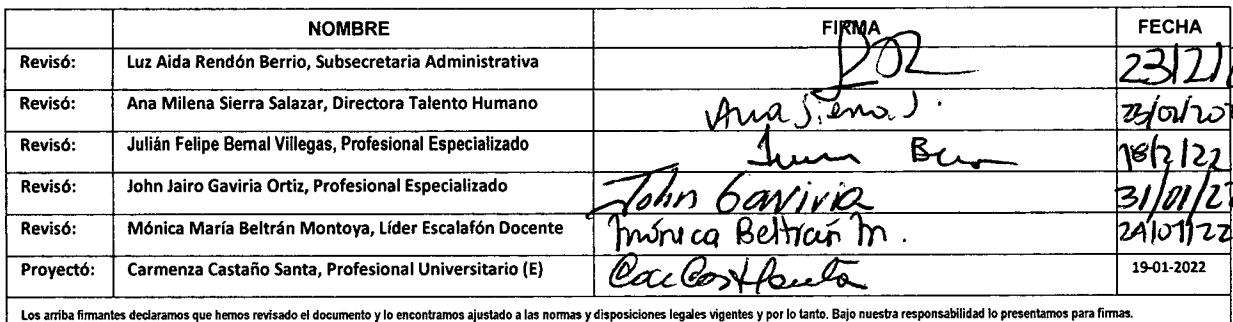 NOMBRE FIRMA FECHA
Revisó: Luz Aida Rendón Berrio, Subsecretaria Administrativa 23/2/
Revisó: Ana Milena Sierra Salazar, Directora Talento Humano Ana Sierra S. 23/02/20
Revisó: Julián Felipe Bernal Villegas, Profesional Especializado 18/2/22
Revisó: John Jairo Gaviria Ortiz, Profesional Especializado John Gaviria 31/01/2
Revisó: Mónica María Beltrán Montoya, Líder Escalafón Docente Mónica Beltrán M. 24/01/22
Proyectó: Carmenza Castaño Santa, Profesional Universitario (E) 19-01-2022
Los arriba firmantes declaramos que hemos revisado el documento y lo encontramos ajustado a las normas y disposiciones legales vigentes y por lo tanto. Bajo nuestra responsabilidad lo presentamos para firmas.